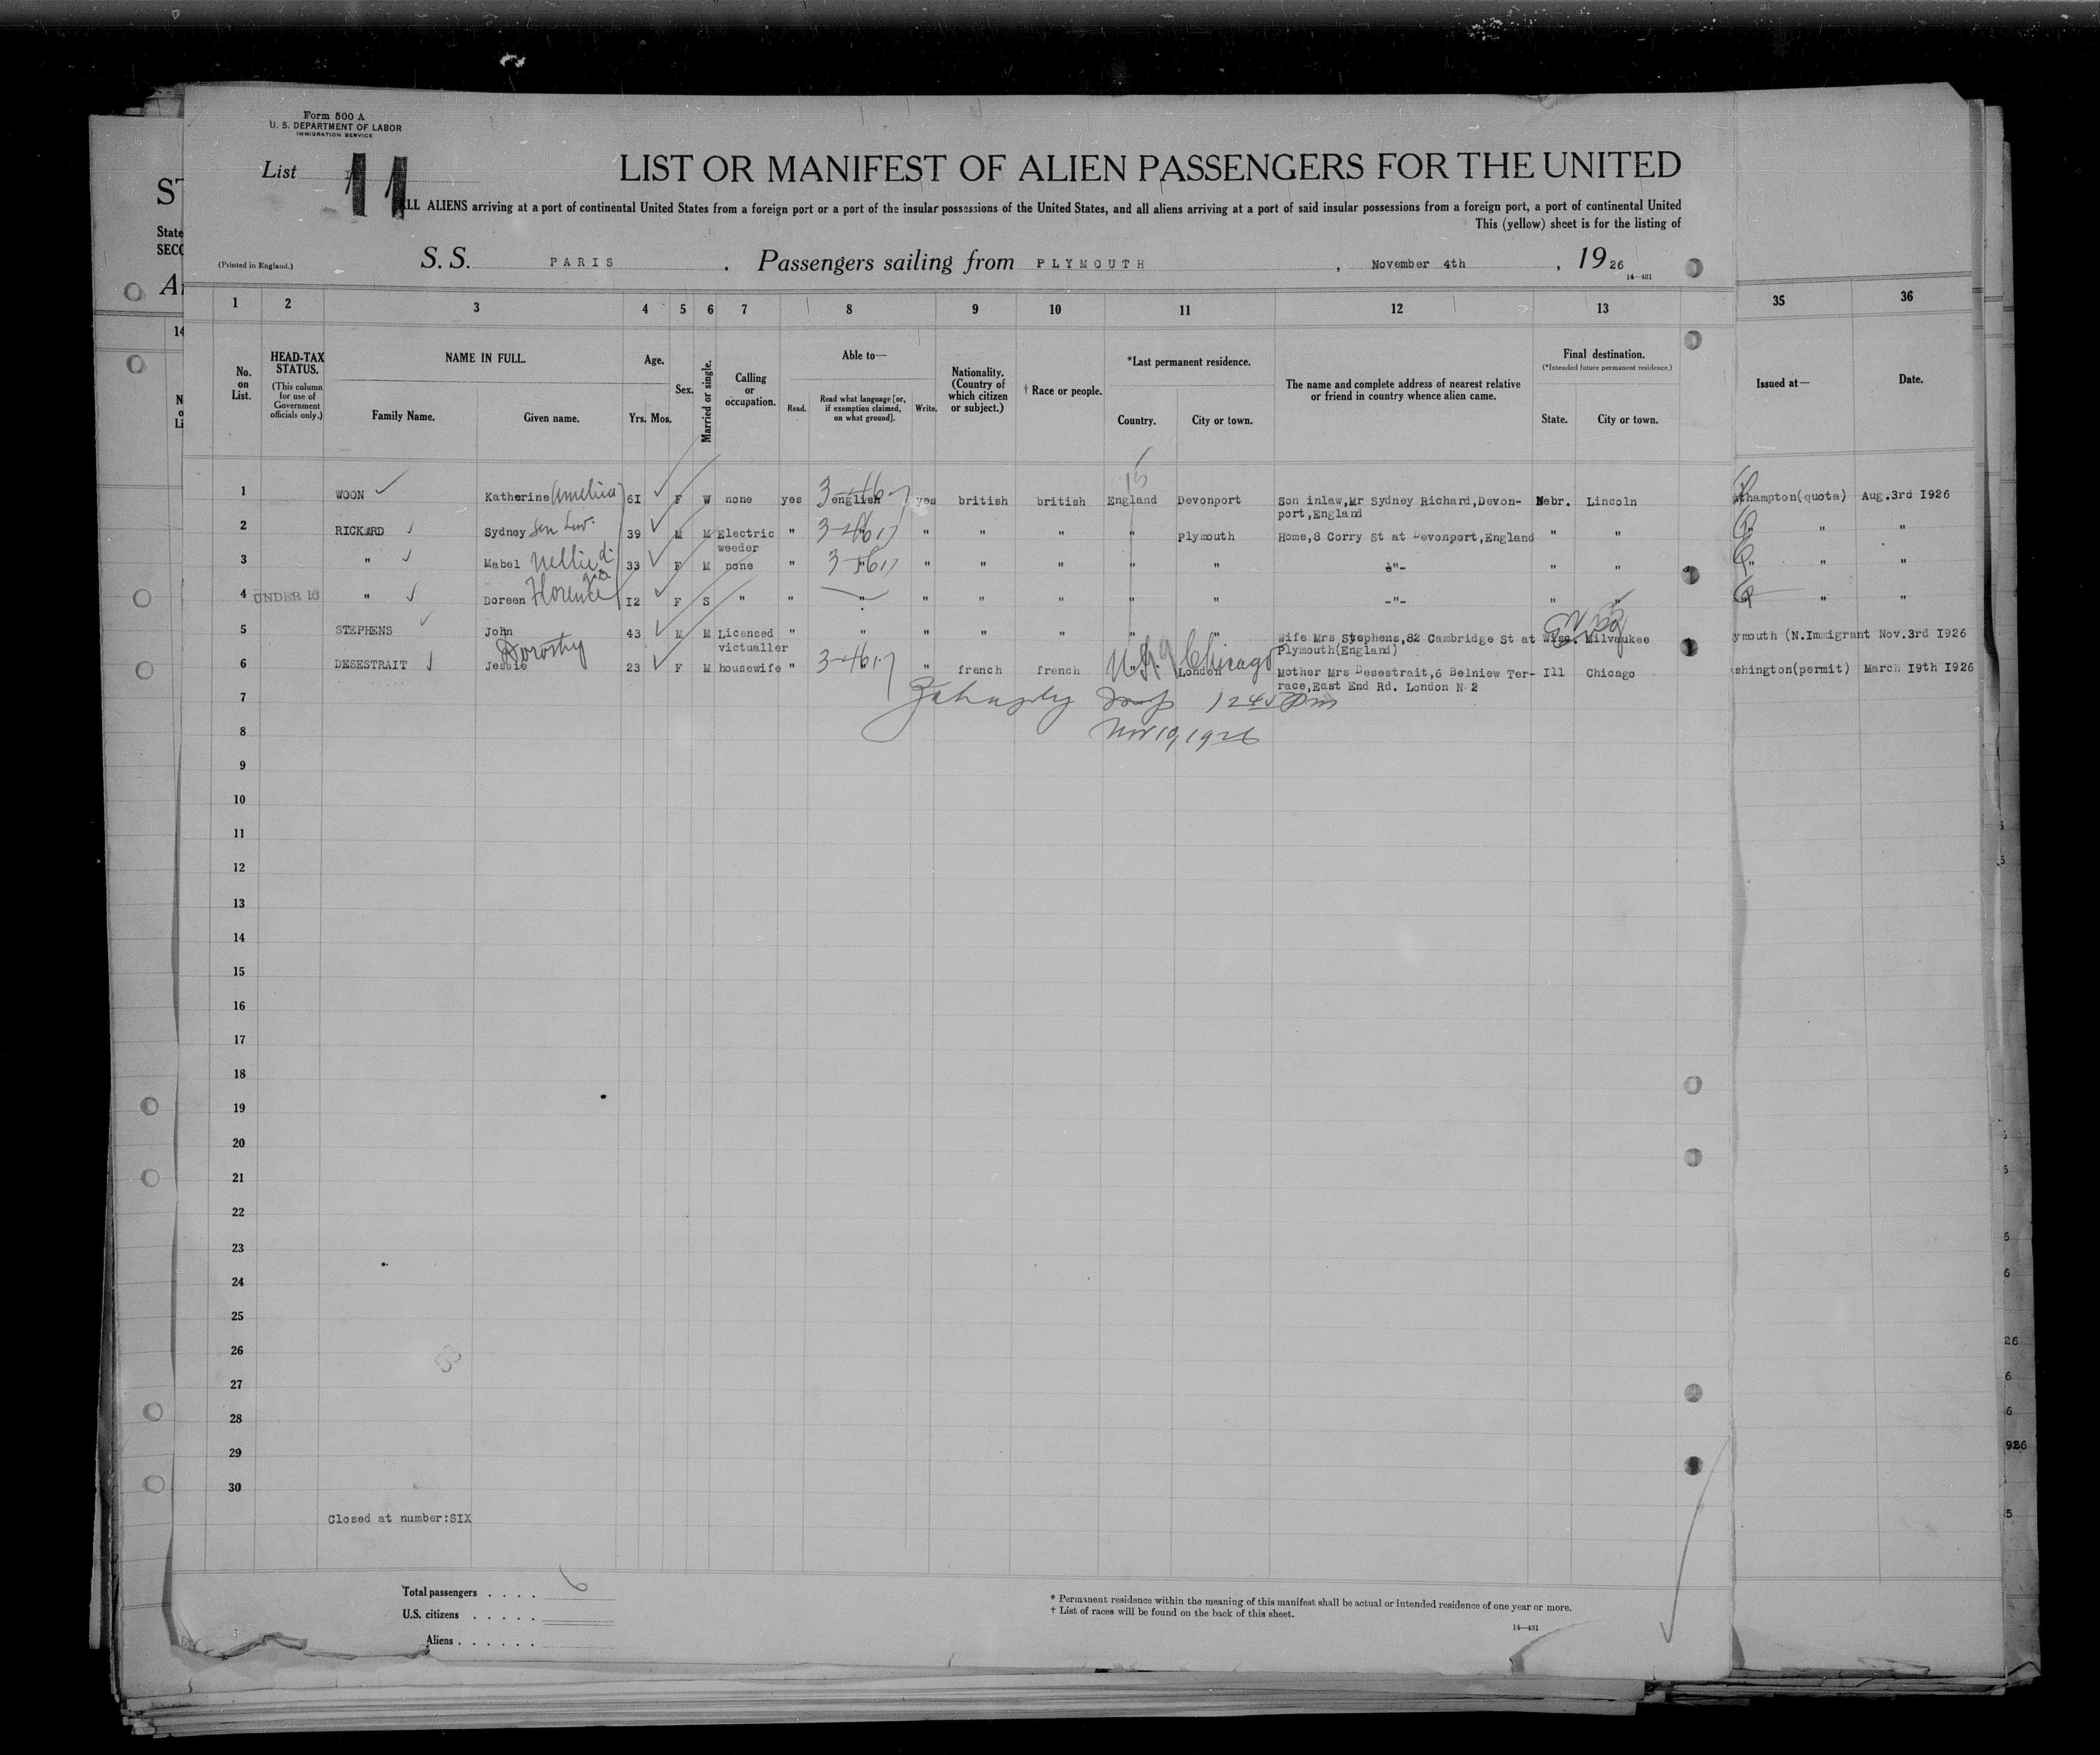 Form 500 A
U. S. DEPARTMENT OF LABOR
IMMIGRATION SERVICE
List 11
LIST OR MANIFEST OF ALIEN PASSENGERS FOR THE UNITED
ALL ALIENS arriving at a port of continental United States from a foreign port or a port of the insular possessions of the United States, and all aliens arriving at a port of said insular possessions from a foreign port, a port of continental United
This (yellow) sheet is for the listing of
(Printed in England.)
S. S. PARIS. Passengers sailing from PLYMOUTH, November 4th, 1926
14—431
1 2 3 4 5 6 7 8 9 10 11 12 13 35 36
No. on List.
HEAD-TAX STATUS.
(This column for use of Government officials only.)
NAME IN FULL.
Family Name. Given name.
Age.
Yrs. Mos.
Sex.
Married or single.
Calling or occupation.
Able to—
Read. Read what language [or, if exemption claimed, on what ground]. Write.
Nationality. (Country of which citizen or subject.)
† Race or people.
*Last permanent residence.
Country. City or town.
The name and complete address of nearest relative or friend in country whence alien came.
Final destination.
(*Intended future permanent residence.)
State. City or town.
Issued at— Date.
1 WOON Katherine Amelia 61 F W none yes english yes british british England Devonport Son inlaw,Mr Sydney Richard,Devon- Nebr. Lincoln thampton(quota) Aug.3rd 1926
port,England
2 RICKARD Sydney Son Law. 39 M M Electric " " " " " " Plymouth Home,8 Corry St at Devonport,England " " " " "
weeder
3 " Mabel Nellie 33 F M none " " " " " " " -"- " " " " "
4 UNDER 16 " Doreen Florence 12 F S " " " " " " " " -"- " " " " "
5 STEPHENS John 43 M M Licensed " " " " " " " wife Mrs Stephens,82 Cambridge St at Wisc. Milvaukee ymouth (N.Immigrant Nov.3rd 1926
victualler Plymouth(England)
6 DESESTRAIT Jessie Dorothy 23 F M housewife " " french french " London Chicago Mother Mrs Desestrait,6 Belniew Ter- Ill Chicago shington(permit) March 19th 1926
race,East End Rd. London N 2
7 1245 Pm
8 Nov 10, 1926
9
10
11
12
13
14
15
16
17
18
19
20
21
22
23
24
25
26
27
28
29
30
Closed at number:SIX
Total passengers . . . . 6
U.S. citizens . . . . .
Aliens . . . . . .
* Permanent residence within the meaning of this manifest shall be actual or intended residence of one year or more.
† List of races will be found on the back of this sheet.
14—431